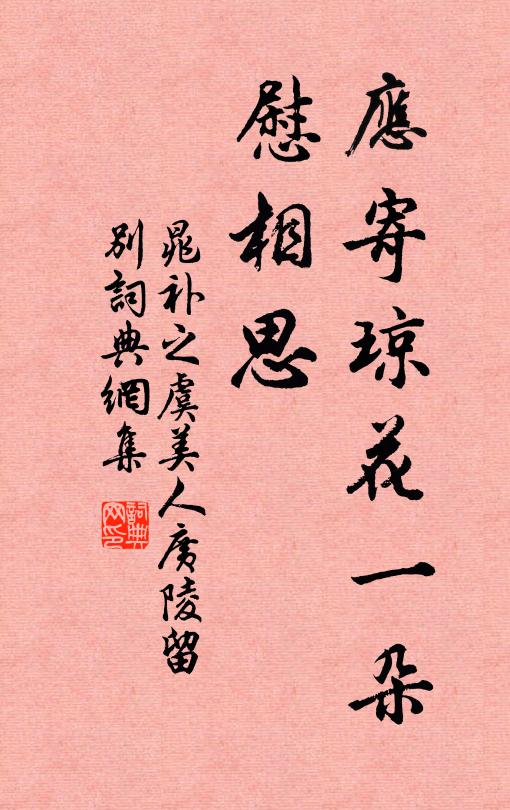 應寄琼花一朵
慰相思
晁补之虞美人廣陵留
别詞典網集
詞典
网印